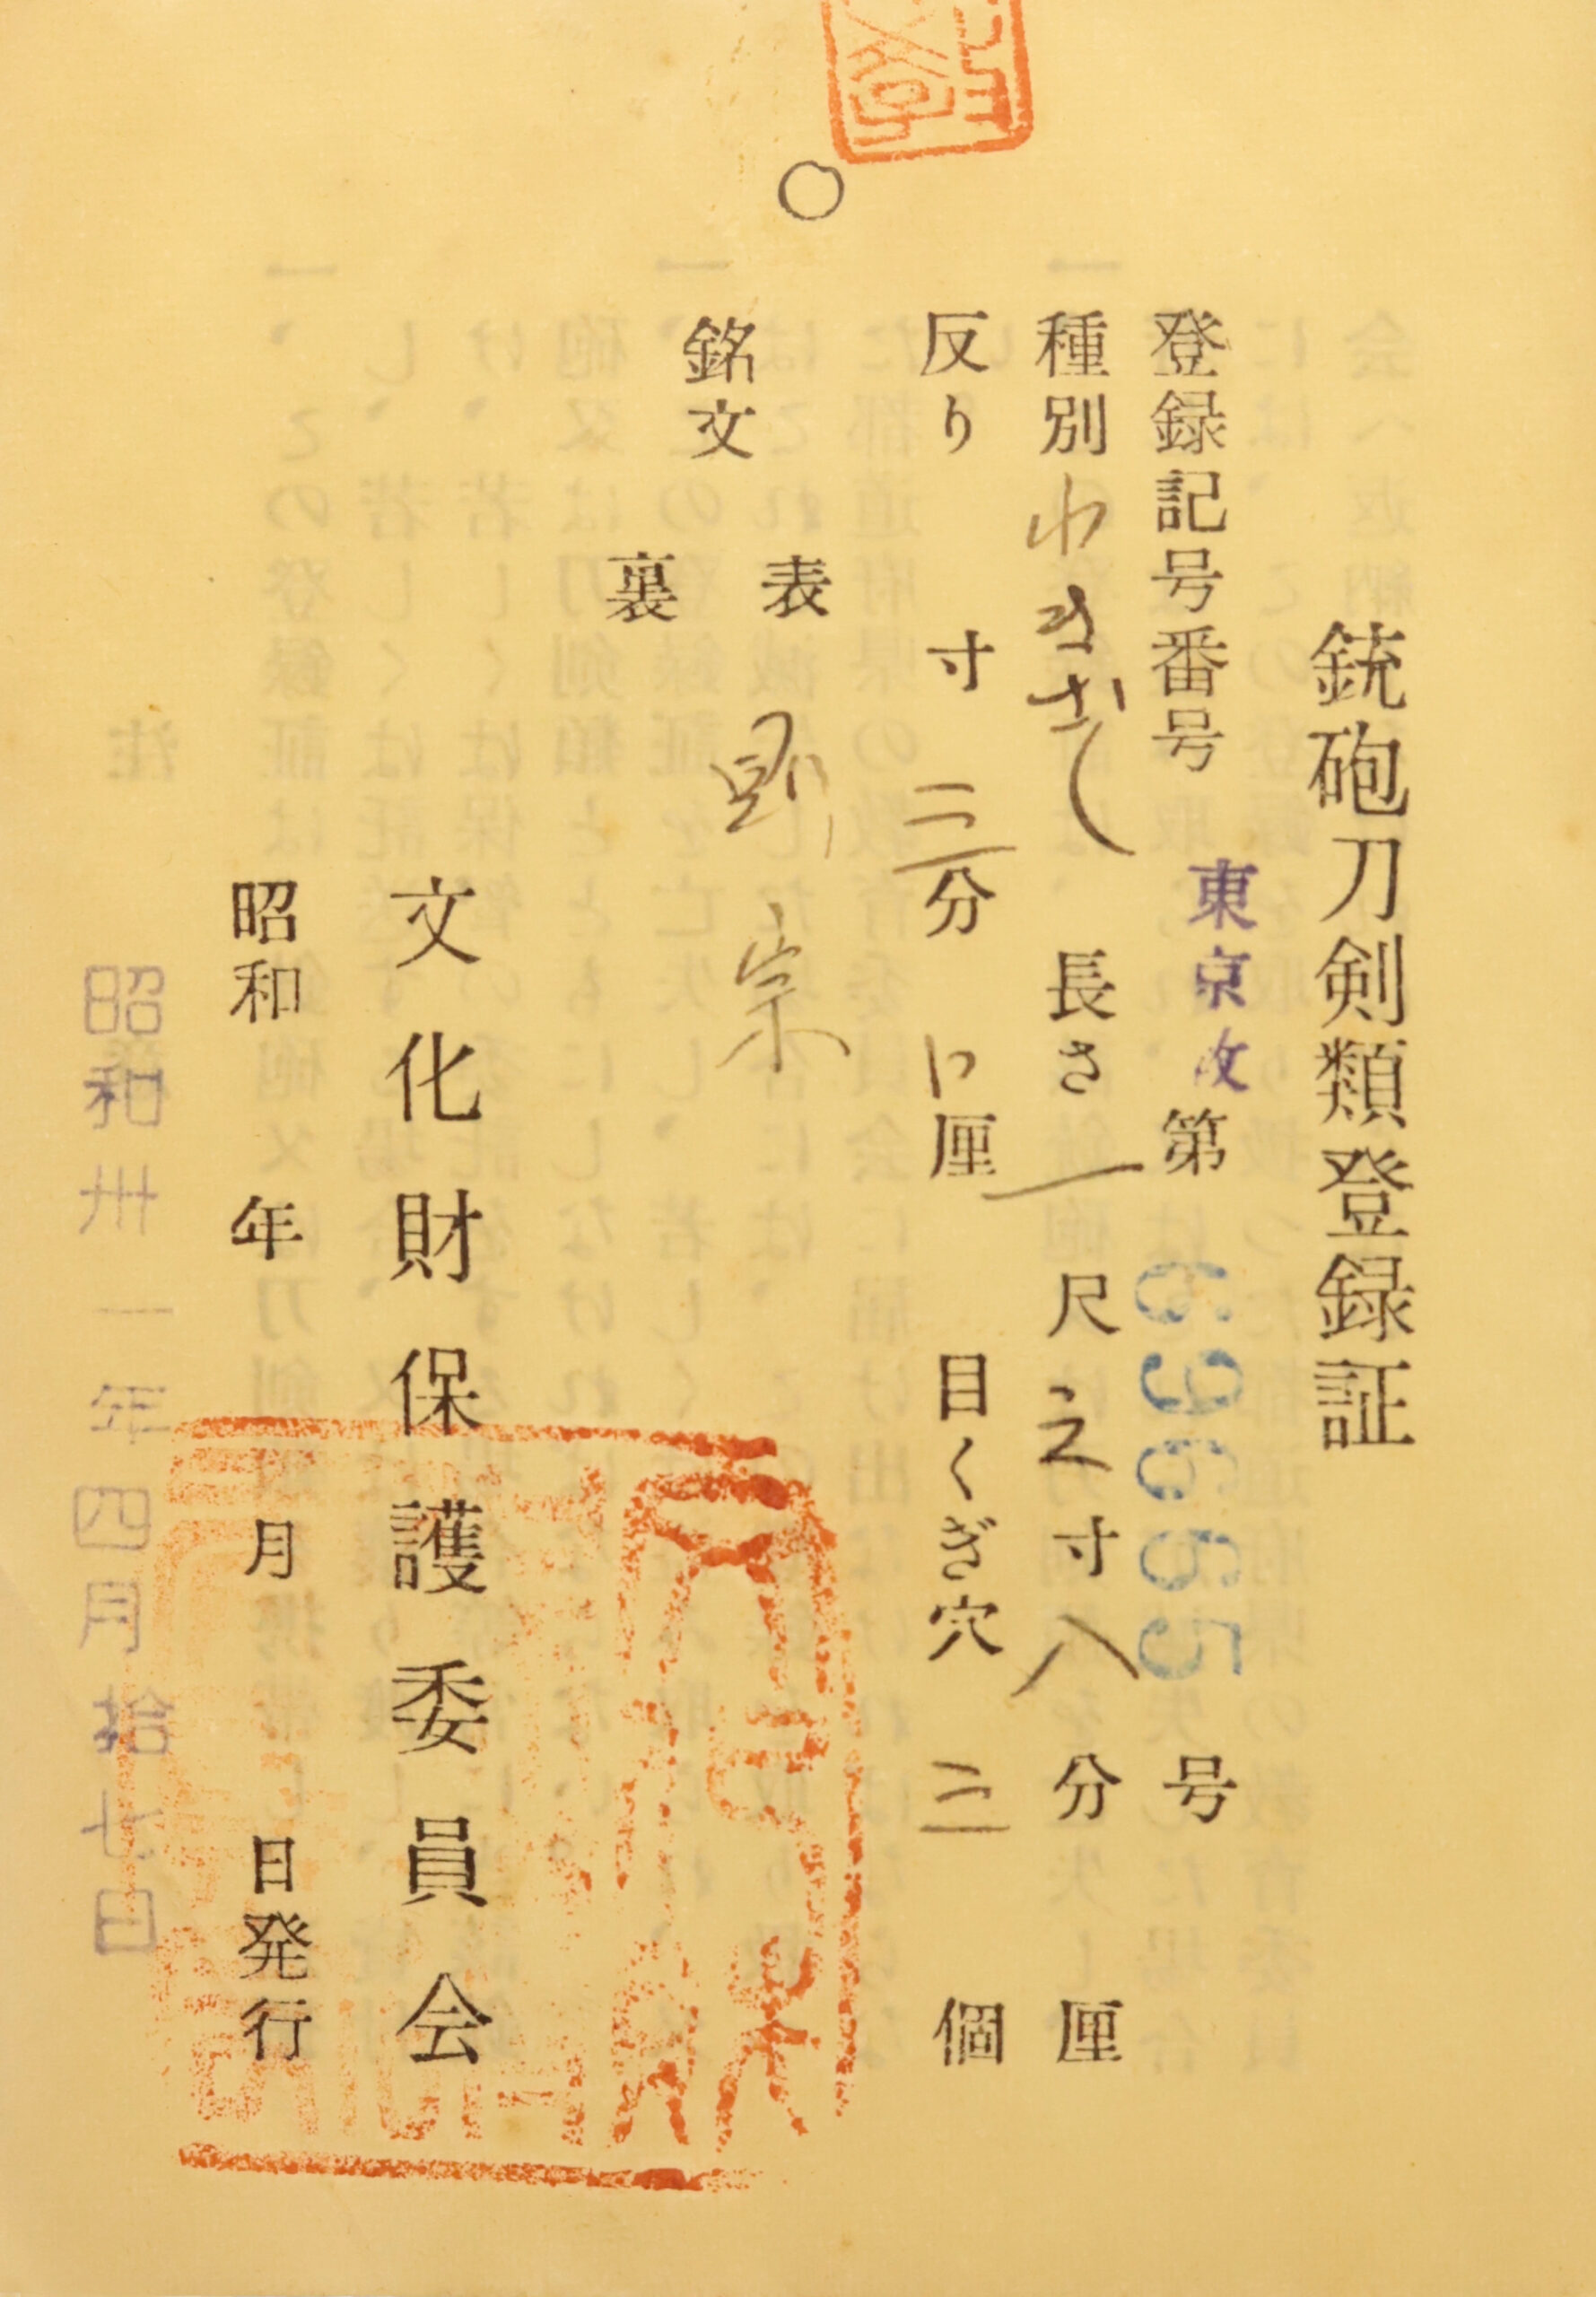 銃砲刀剣類登録証
登録記号番号 東京改 第 69655 号
種別 わきざし 長さ 一尺 之 寸 八 分 厘
反り 寸 三分 厘 目くぎ穴 二 個
銘文
表 則宗
裏
文化財保護委員会
昭和 年 月 日発行
昭和卅一年四月拾七日